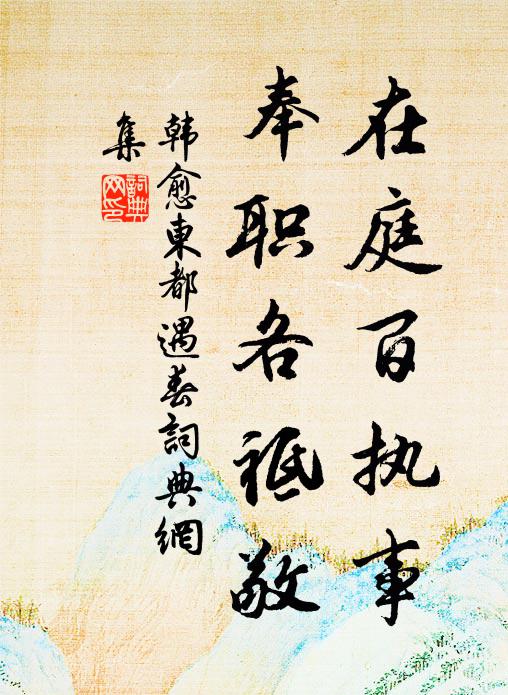 在庭百执事
奉职各祗敬
韩愈東都遇春詞典網
集
詞典网印